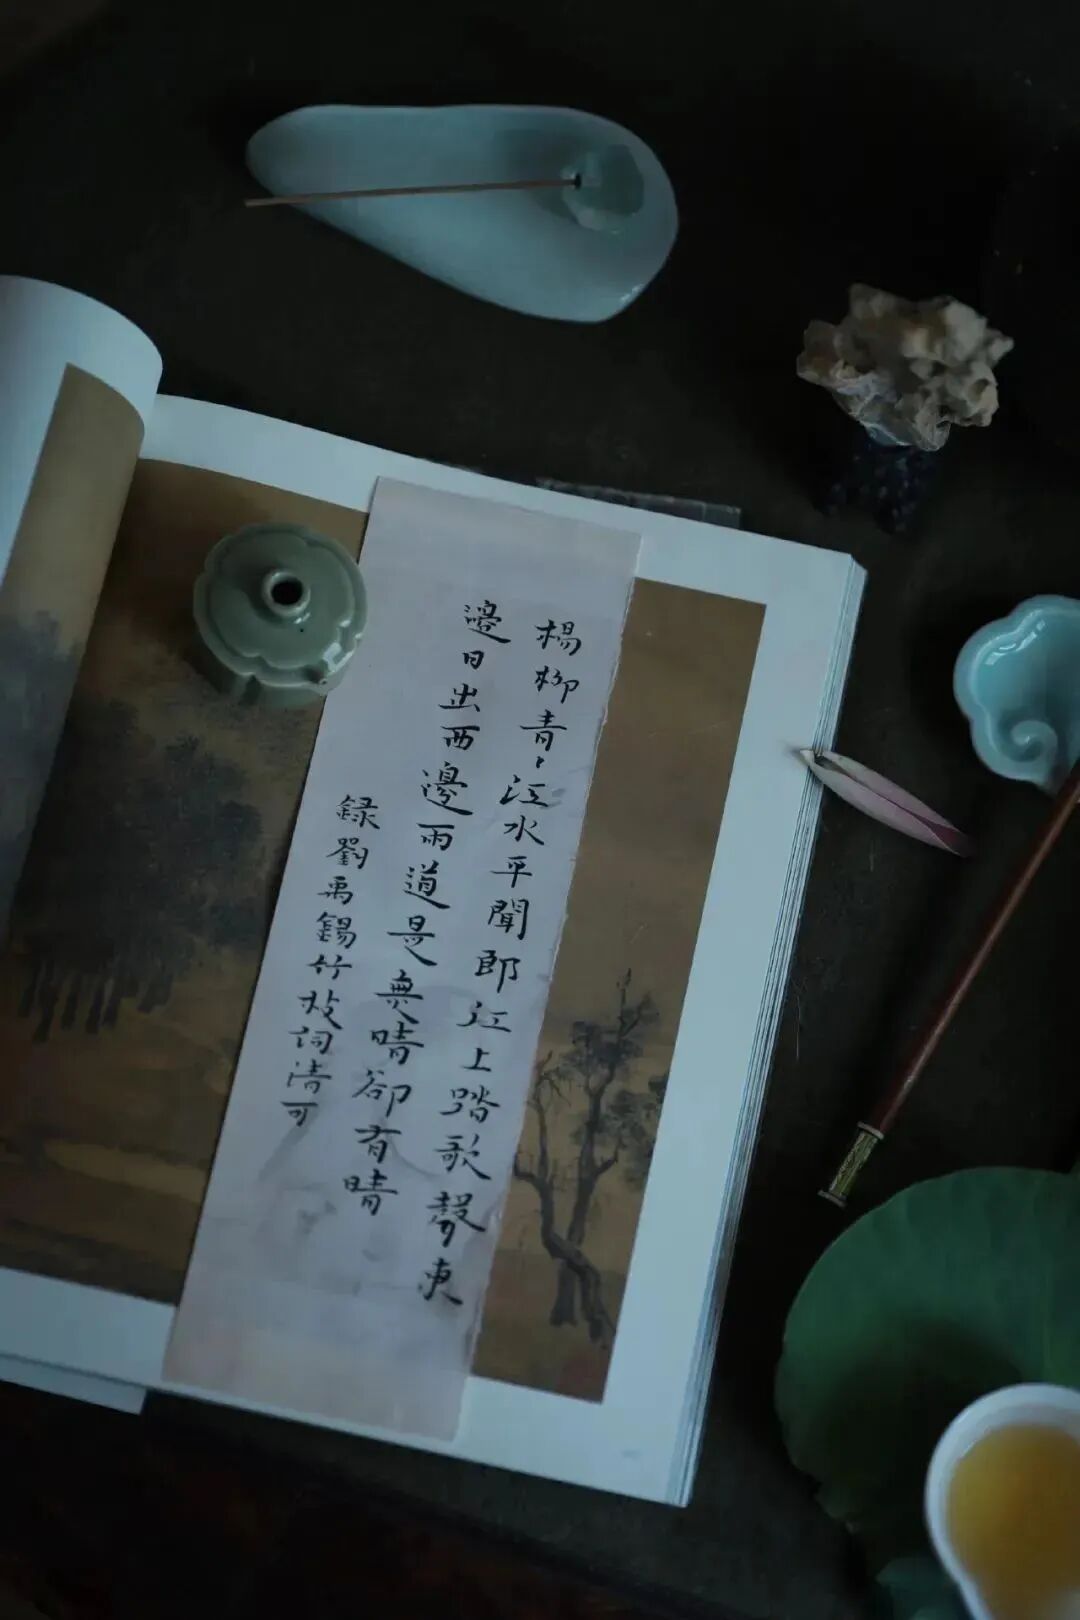 楊柳青〻江水平聞郎江上踏歌聲東
邊日出西邊雨道是無晴卻有晴
録劉禹錫竹枝詞清可